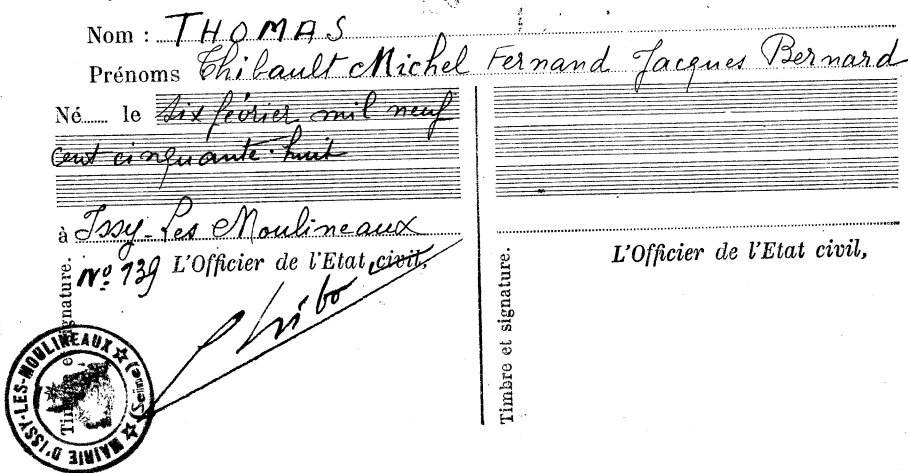 Nom : THOMAS
Prénoms Thibault Michel Fernand Jacques Bernard
Né..... le six février mil neuf
cent cinquante-huit
à Issy-Les Moulineaux
Nº 139 L'Officier de l'Etat civil,
Timbre et signature.
MAIRIE D'ISSY-LES-MOULINEAUX ★ (Seine) ★
L'Officier de l'Etat civil,
Timbre et signature.